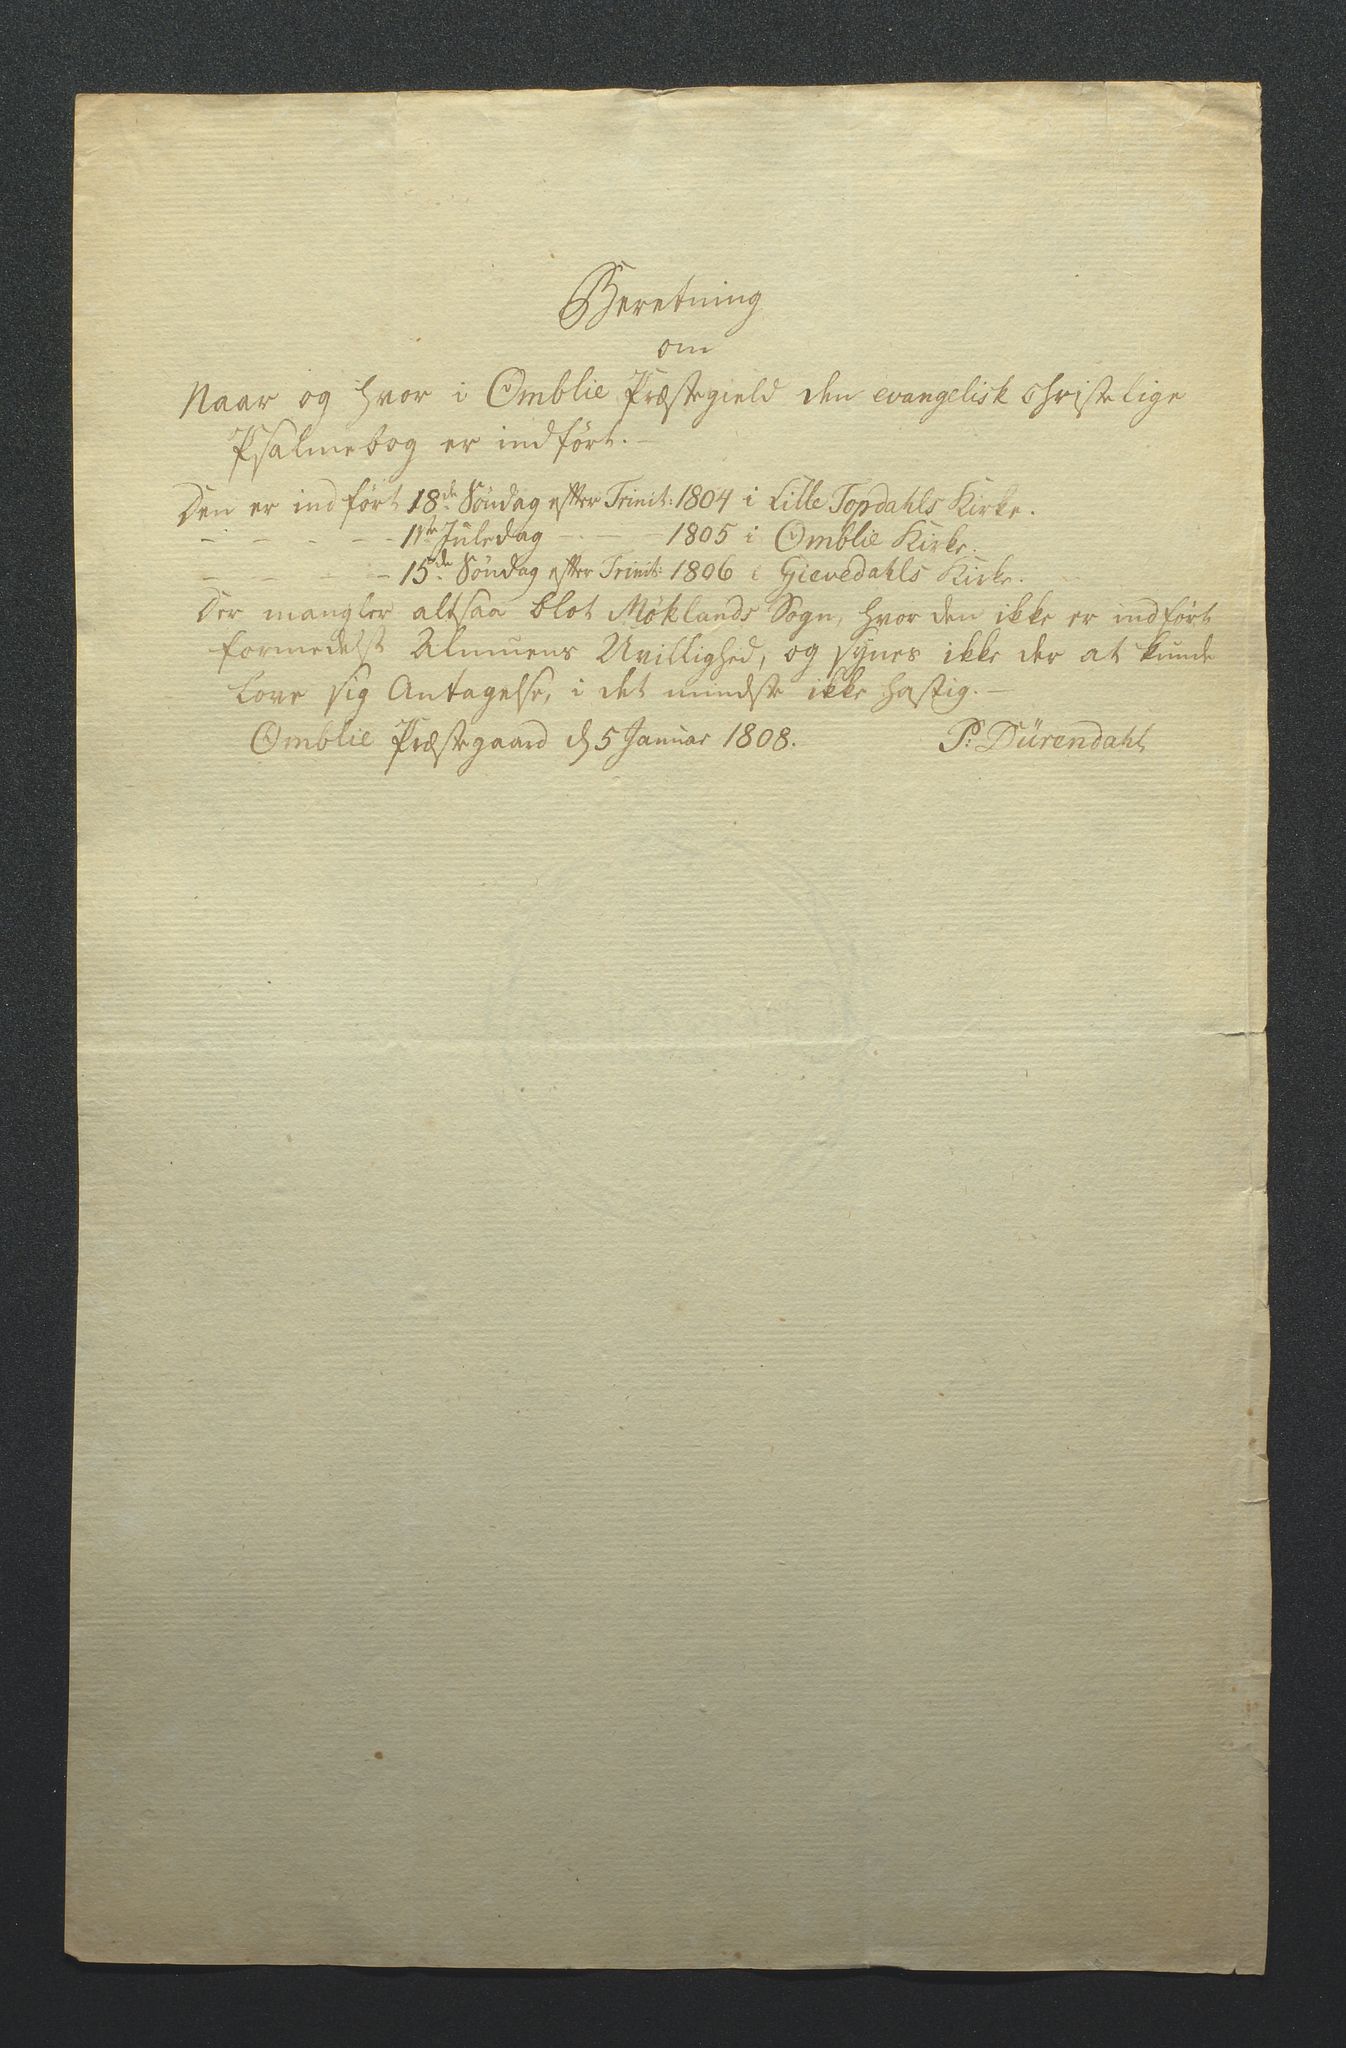 Beretning
om
Naar og hvor i Omblie Præstegield den evangelisk christelige
Psalmebog er indført. -
Den er indført 18de Søndag efter Trinit: 1804 i Lille Topdahls Kirke.
- - - - - 1ste Juledag - - - 1805 i Omblie Kirke.
- - - - - 15de Søndag efter Trinit: 1806 i Gievedahls Kirke.
Der mangler altsaa blot Møklands Sogn, hvor den ikke er indført
formedelst Almuens Uvillighed, og synes ikke der at kunde
love sig Antagelse, i det mindste ikke hastig. -
Omblie Præstegaard d 5 Januar 1808. P: Dürendahl